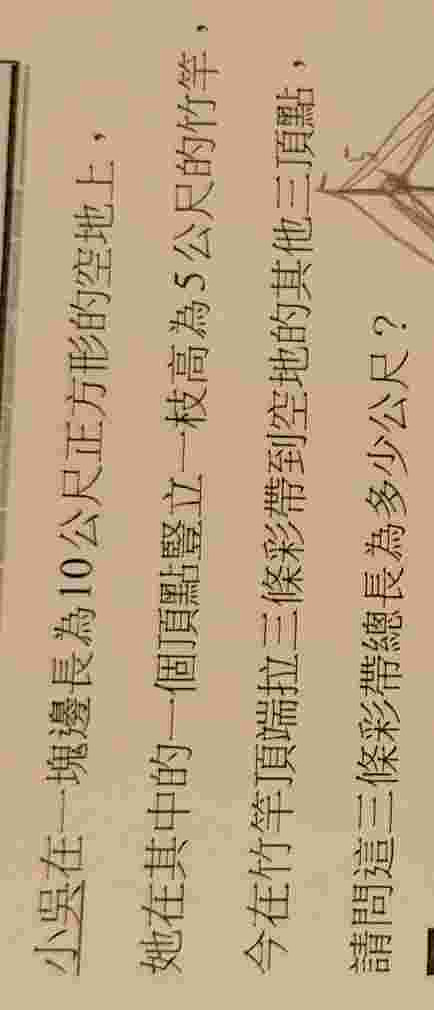 小吳在一塊邊長為10公尺正方形的空地上，
她在其中的一個頂點豎立一枝高為5公尺的竹竿，
今在竹竿頂端拉三條彩帶到空地的其他三頂點，
請問這三條彩帶總長為多少公尺？
5